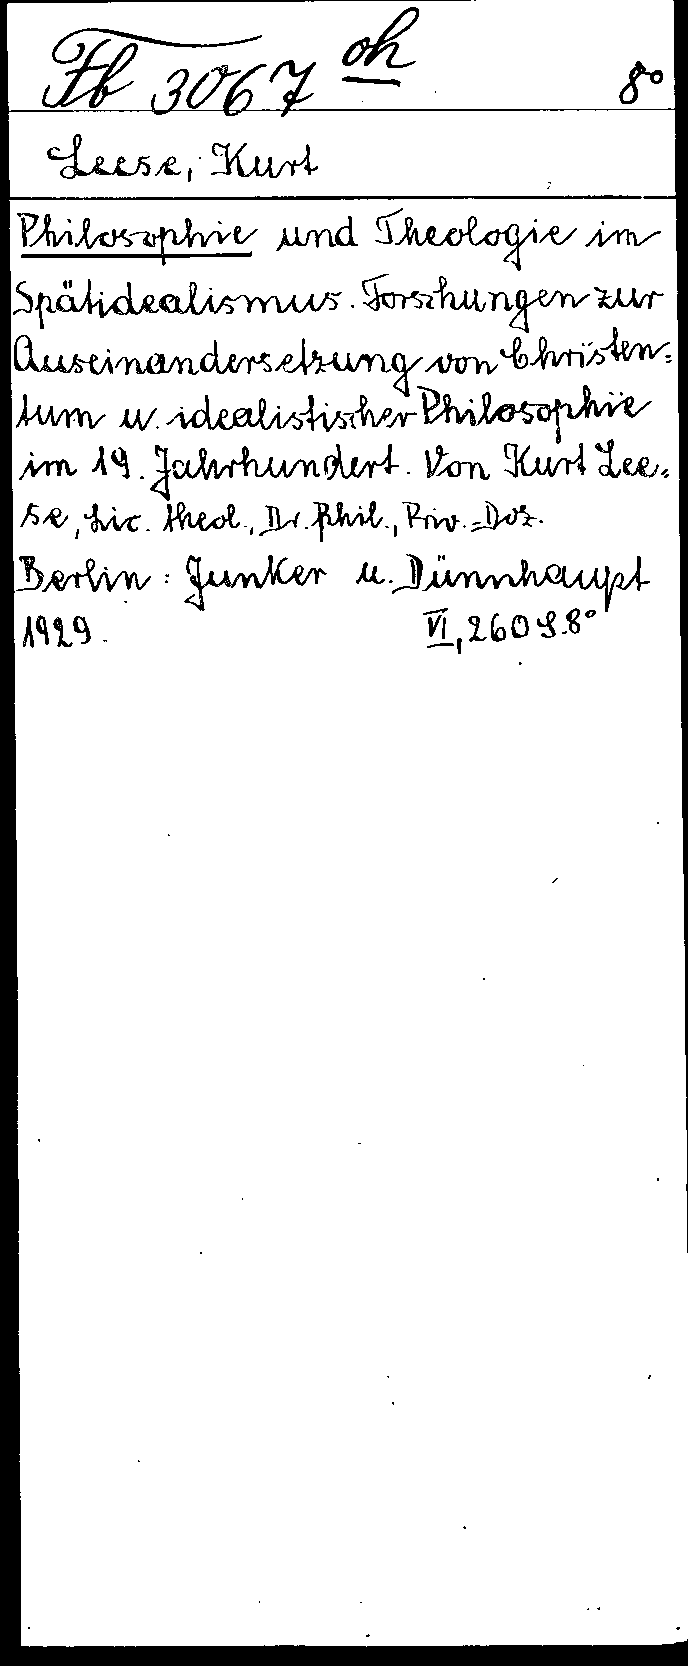 Fb 3067 oh 8°
Leese, Kurt
Philosophie und Theologie im
Spätidealismus. Forschungen zur
Auseinandersetzung von Christen=
tum u. idealistischer Philosophie
im 19. Jahrhundert. Von Kurt Lee=
se, Lic. theol., Dr. phil., Priv.=Doz.
Berlin: Junker u. Dünnhaupt
1929. VI, 260 S. 8°